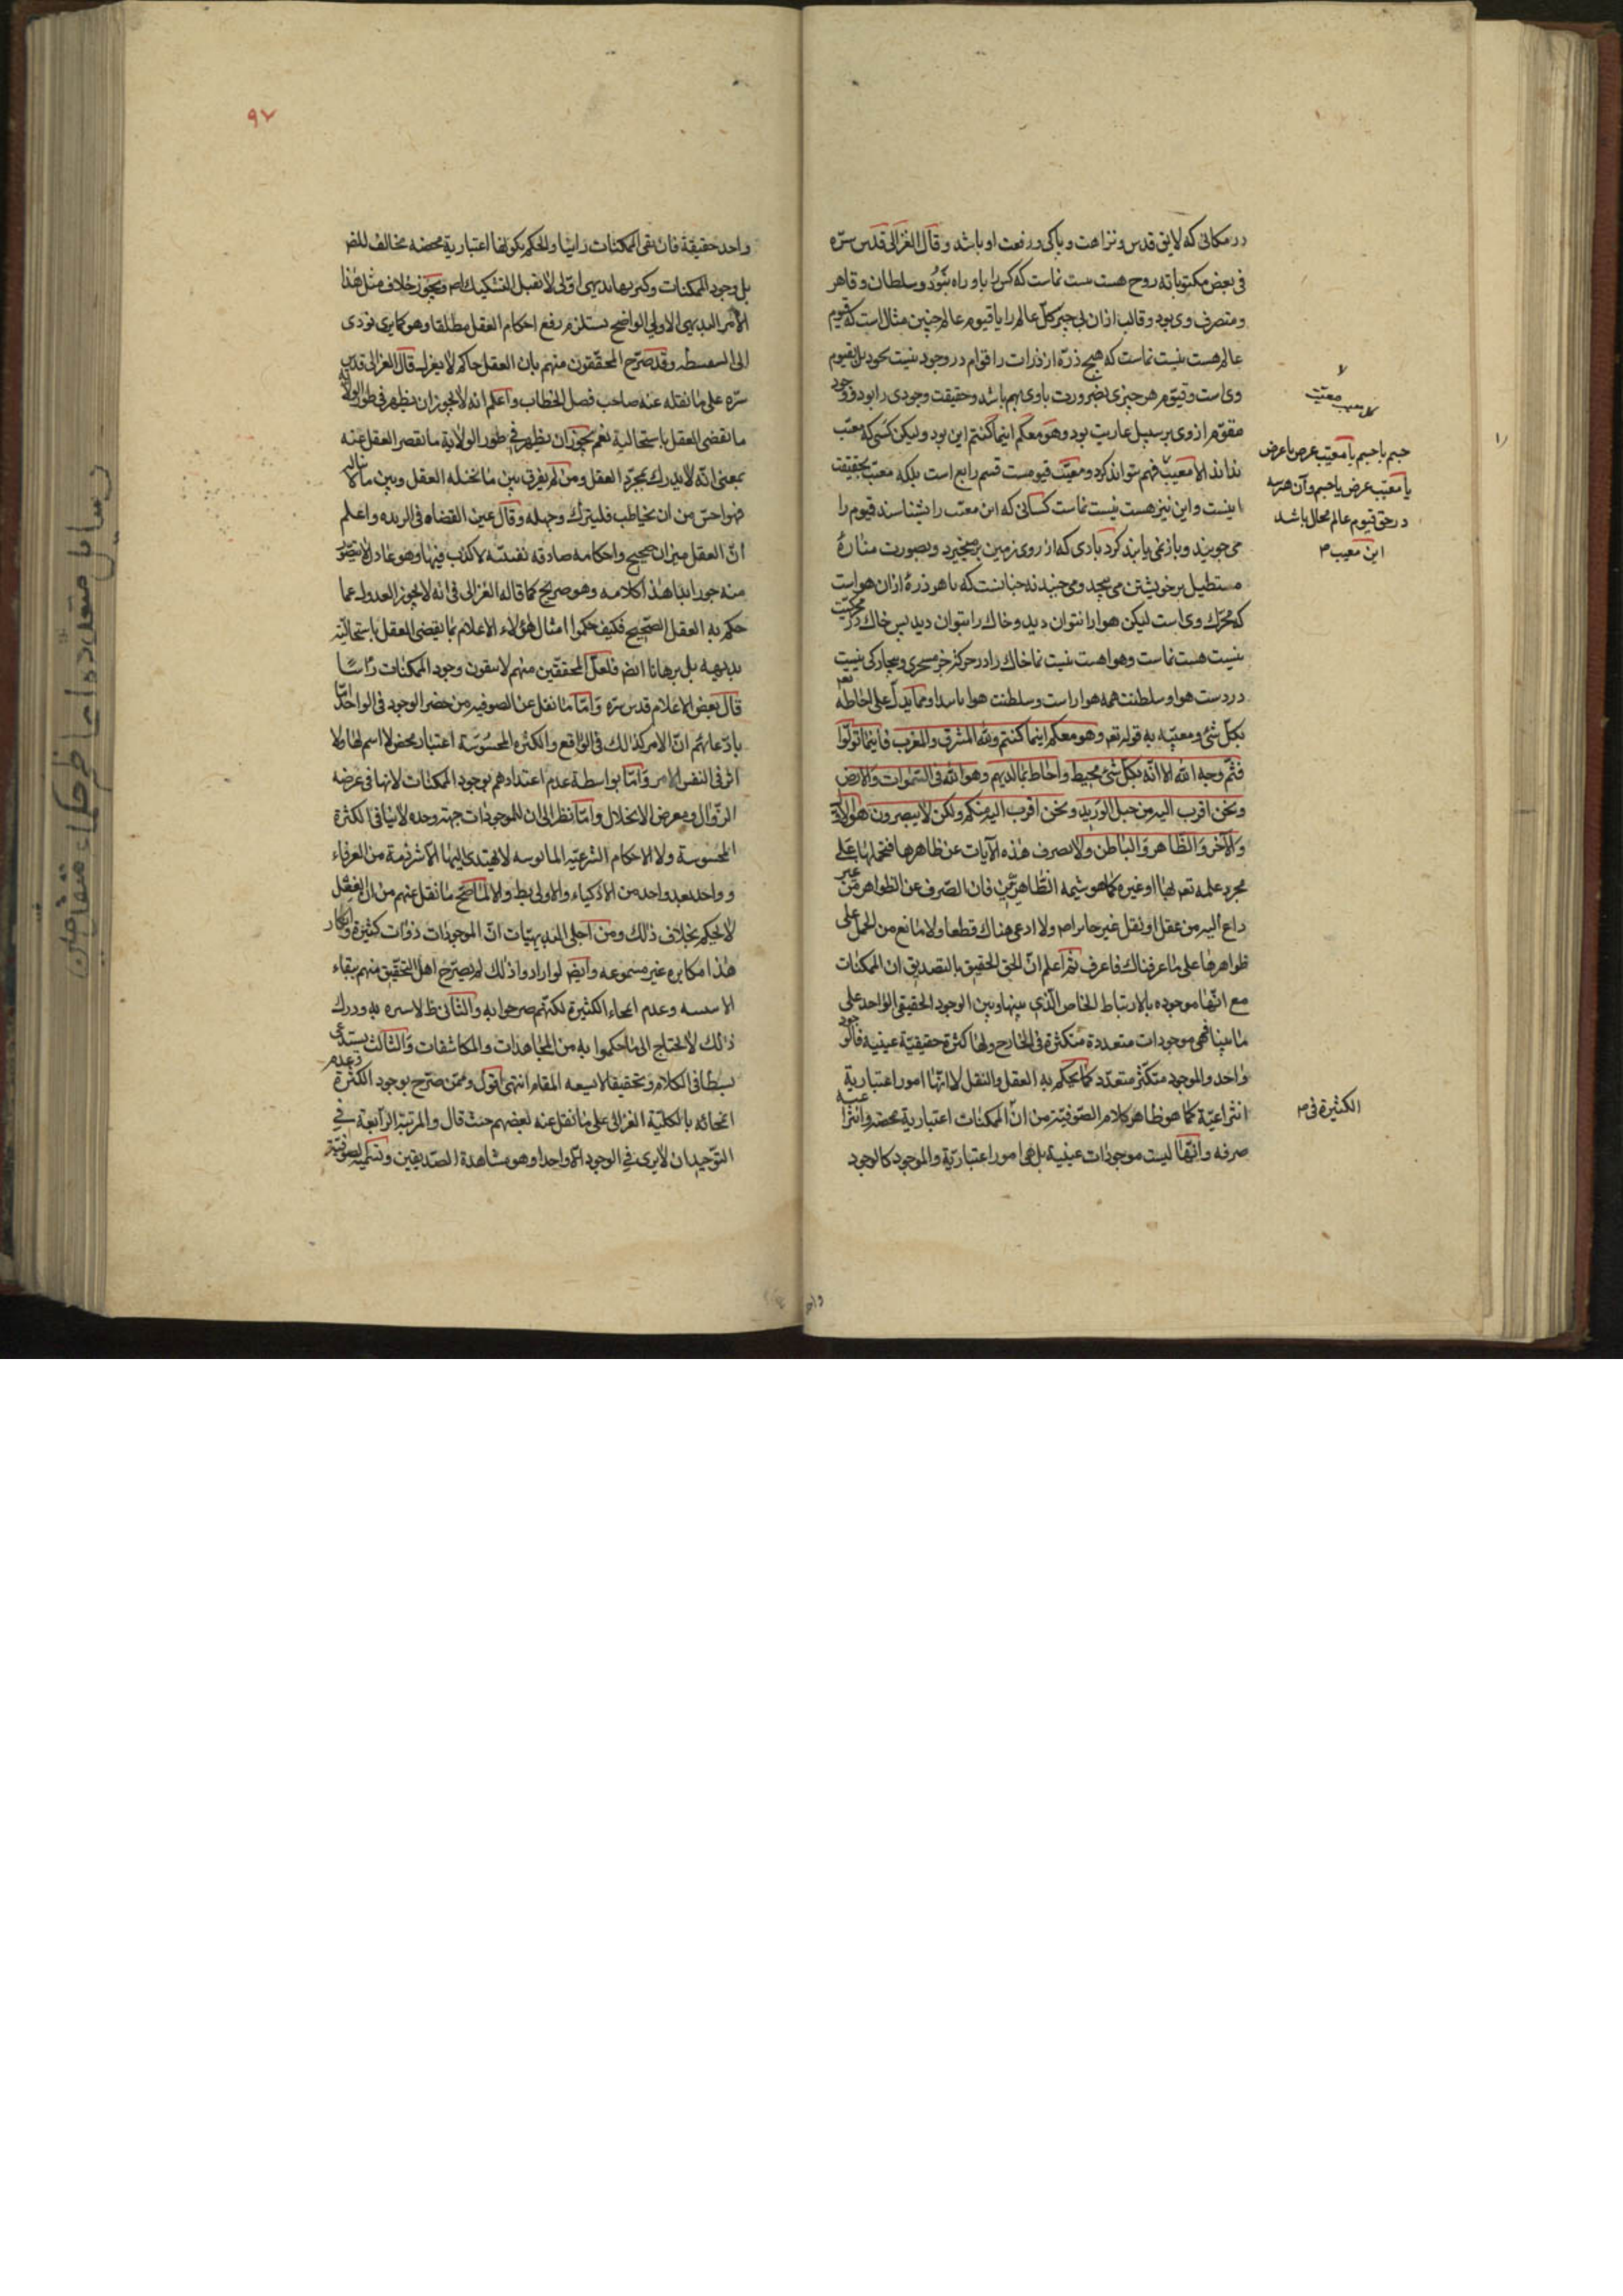 در مکانی که لایق قدس و نزاهت و پاکی و رفعت او باشد و قال الغزالی قدس سرّه
فی بعض مکتوباته روح هست نیست نماست که کس را باو راه نبود و سلطان و قاهر
و متصرف وی بود و قالب ازان بی خبر کل عالم را با قیوم عالم چنین مثال است که قیوم
عالم هست نیست نماست که هیچ ذرّه از ذرات را قوام در وجود نیست بخود بل بقیوم
وی است و قیوم هر چیزی بضرورت با وی بهم باشد و حقیقت وجود وی را بود و وجود
مقوّم از وی بر سبیل عاریت بود و هو معکم اینما کنتم این بود و لیکن کسی که معیت
نداند الا معیت فهم نتواند کرد و معیت قیومیت قسم رابع است بلکه معیت بحقیقت
اینست و این نیز هست نیست نماست کسانی که این معیت را نشناسند قیوم را
می جویند و باز نمی یابند کرد بادی که از روی زمین برمیخیزد و بصورت مناره
مستطیل بر خویشتن می پیچد و می جنبد نه چنانست که با هر ذره ازان هواست
که محرک وی است لیکن هوا را نتوان دید و خاک را بتوان دید پس خاک در محرکیت
نیست هست نماست و هوا هست نیست نما خاک را در حرکت جز مسخری و بیچارکی نیست
در دست هوا و سلطنت همه هوا راست و سلطنت هوا ناپیدا و مما یدل علی احاطة
بکل شئ و معیته به قوله تعم و هو معکم اینما کنتم ولله المشرق والمغرب فاینما تولّوا
فثم وجه الله الا انّه بکل شئ محیط و احاط بما لدیهم وهو الله فی السموات والارض
ونحن اقرب الیه من حبل الورید ونحن اقرب الیه منکم ولکن لا تبصرون هو الاول
والآخر والظاهر والباطن ولا نصرف هذه الآیات عن ظاهرها فنحملها علی
مجرد علمه تعم بها او غیره کما هو شیمة الظاهریین فان الصرف عن الظواهر من غیر
داع الیه من عقل او نقل غیر جایز اصلا ولا داعی هناک قطعا ولا مانع من الحمل علی
ظواهرها علی ما عرفناک فاعرف ثم اعلم انّ الحق الحقیق بالتصدیق ان الممکنات
مع انّها موجوده بالارتباط الخاص الذی بینها و بین الوجود الحقیقی الواحد علی
ما بینا فهی موجودات متعددة متکثرة فی الخارج ولها کثرة حقیقیّة عینیة فالوجود
واحد والموجود متکثر متعدّد کما یحکم به العقل والنقل لا انّها امور اعتباریة
انتزاعیّة کما هو ظاهر کلام الصوفیّة من انّ الممکنات اعتباریة محضه و انتزاعیة
صرفه و انّها لیست موجودات عینیة بل هی امور اعتباریّة والموجود کالوجود
معیت
جسم با جسم یا معیت عرض با عرض
یا معیت عرض با جسم و آن هر سه
در حق قیوم عالم محال باشد
این معیت
الکثیرة فی
واحد
٩٧
واحد حقیقة فان نفی الممکنات رأسا والحکم بکونها اعتباریة محضه مخالف للضر
بل وجود الممکنات و کثرتها بدیهی اوّلی لا تقبل التشکیک اصلا و تجویز خلاف مثل هذا
الامر البدیهی الاولی الواضح یستلزم رفع احکام العقل مطلقا وهو کما یری تؤدی
الی السفسطه وقد صرّح المحققون منهم بان العقل حاکم لا یعزل قال الغزالی قدس
سرّه علی ما نقله عنه صاحب فصل الخطاب واعلم انه لا یجوز ان یظهر فی طور الولایة
ما یقضی العقل باستحالته نعم یجوز ان یظهر فی طور الولایة ما یقصر العقل عنه
بمعنی انّه لا یدرک بمجرّد العقل ومن لم یفرق بین ما یحیله العقل وبین ما لا یناله
فهو اخس من ان یخاطب فلیترک وجهله وقال عین القضاة فی الزبده واعلم
انّ العقل میزان صحیح واحکامه صادقه یقینیّه لا کذب فیها وهو عادل لا یتصوّر
منه جور ابدا هذا کلامه وهو صریح کما قاله الغزالی فی انه لا یجوز العدول عما
حکم به العقل الصحیح فکیف حکموا امثال هؤلاء الاعلام بما یقضی العقل باستحالته
بدیهة بل برهانا ایض فلعلّ المحققین منهم لا ینفون وجود الممکنات رأسًا
قال بعض الاعلام قدس سره وامّا ما نقل عن الصوفیه من حصر الوجود فی الواحد امّا
بادّعائهم انّ الامر کذلک فی الواقع والکثره المحسوسة اعتبار محض لا اسم لها ولا
اثر فی النفس الامر وامّا بواسطة عدم اعتدادهم بوجود الممکنات لانها فی عرضه
الزوال ومعرض الانحلال وامّا نظرا الی ان للموجودات جهة وحده لا ینافی الکثرة
المحسوسة ولا الاحکام الشرعیّه المانوسه لا یهتدی الیها الا شرذمة من العرفاء
و واحد بعد واحد من الاذکیاء والاولی بط والا لما صحّ ما نقل عنهم من ان العقل
لا یحکم بخلاف ذلک ومن اجلی البدیهیّات انّ الموجودات ذوات کثیرة وانکار
هذا مکابره غیر مسموعه وایض لو ارادوا ذلک لم یصرّح اهل التحقیق منهم ببقاء
وعدم انمحاء الکثیرة لکنّهم صرحوا به والثانی ظ لا سره به ودرک
ذلک لا یحتاج الی ما حکموا به من المجاهدات والمکاشفات والثالث یستدعی
بسطا فی الکلام وتحقیقا لا یسعه المقام انتهی اقول وممّن صرّح بوجود الکثرة وعدم
انمحائه بالکلیّة الغزالی علی ما نقل عنه بعضهم حیث قال والمرتبة الرابعة فی
التوحید ان لا یری فی الوجود الّا واحدا وهو مشاهدة الصدیقین وتسمیه الصوفیّة
رسایل متعدده از حکماء متقدمین